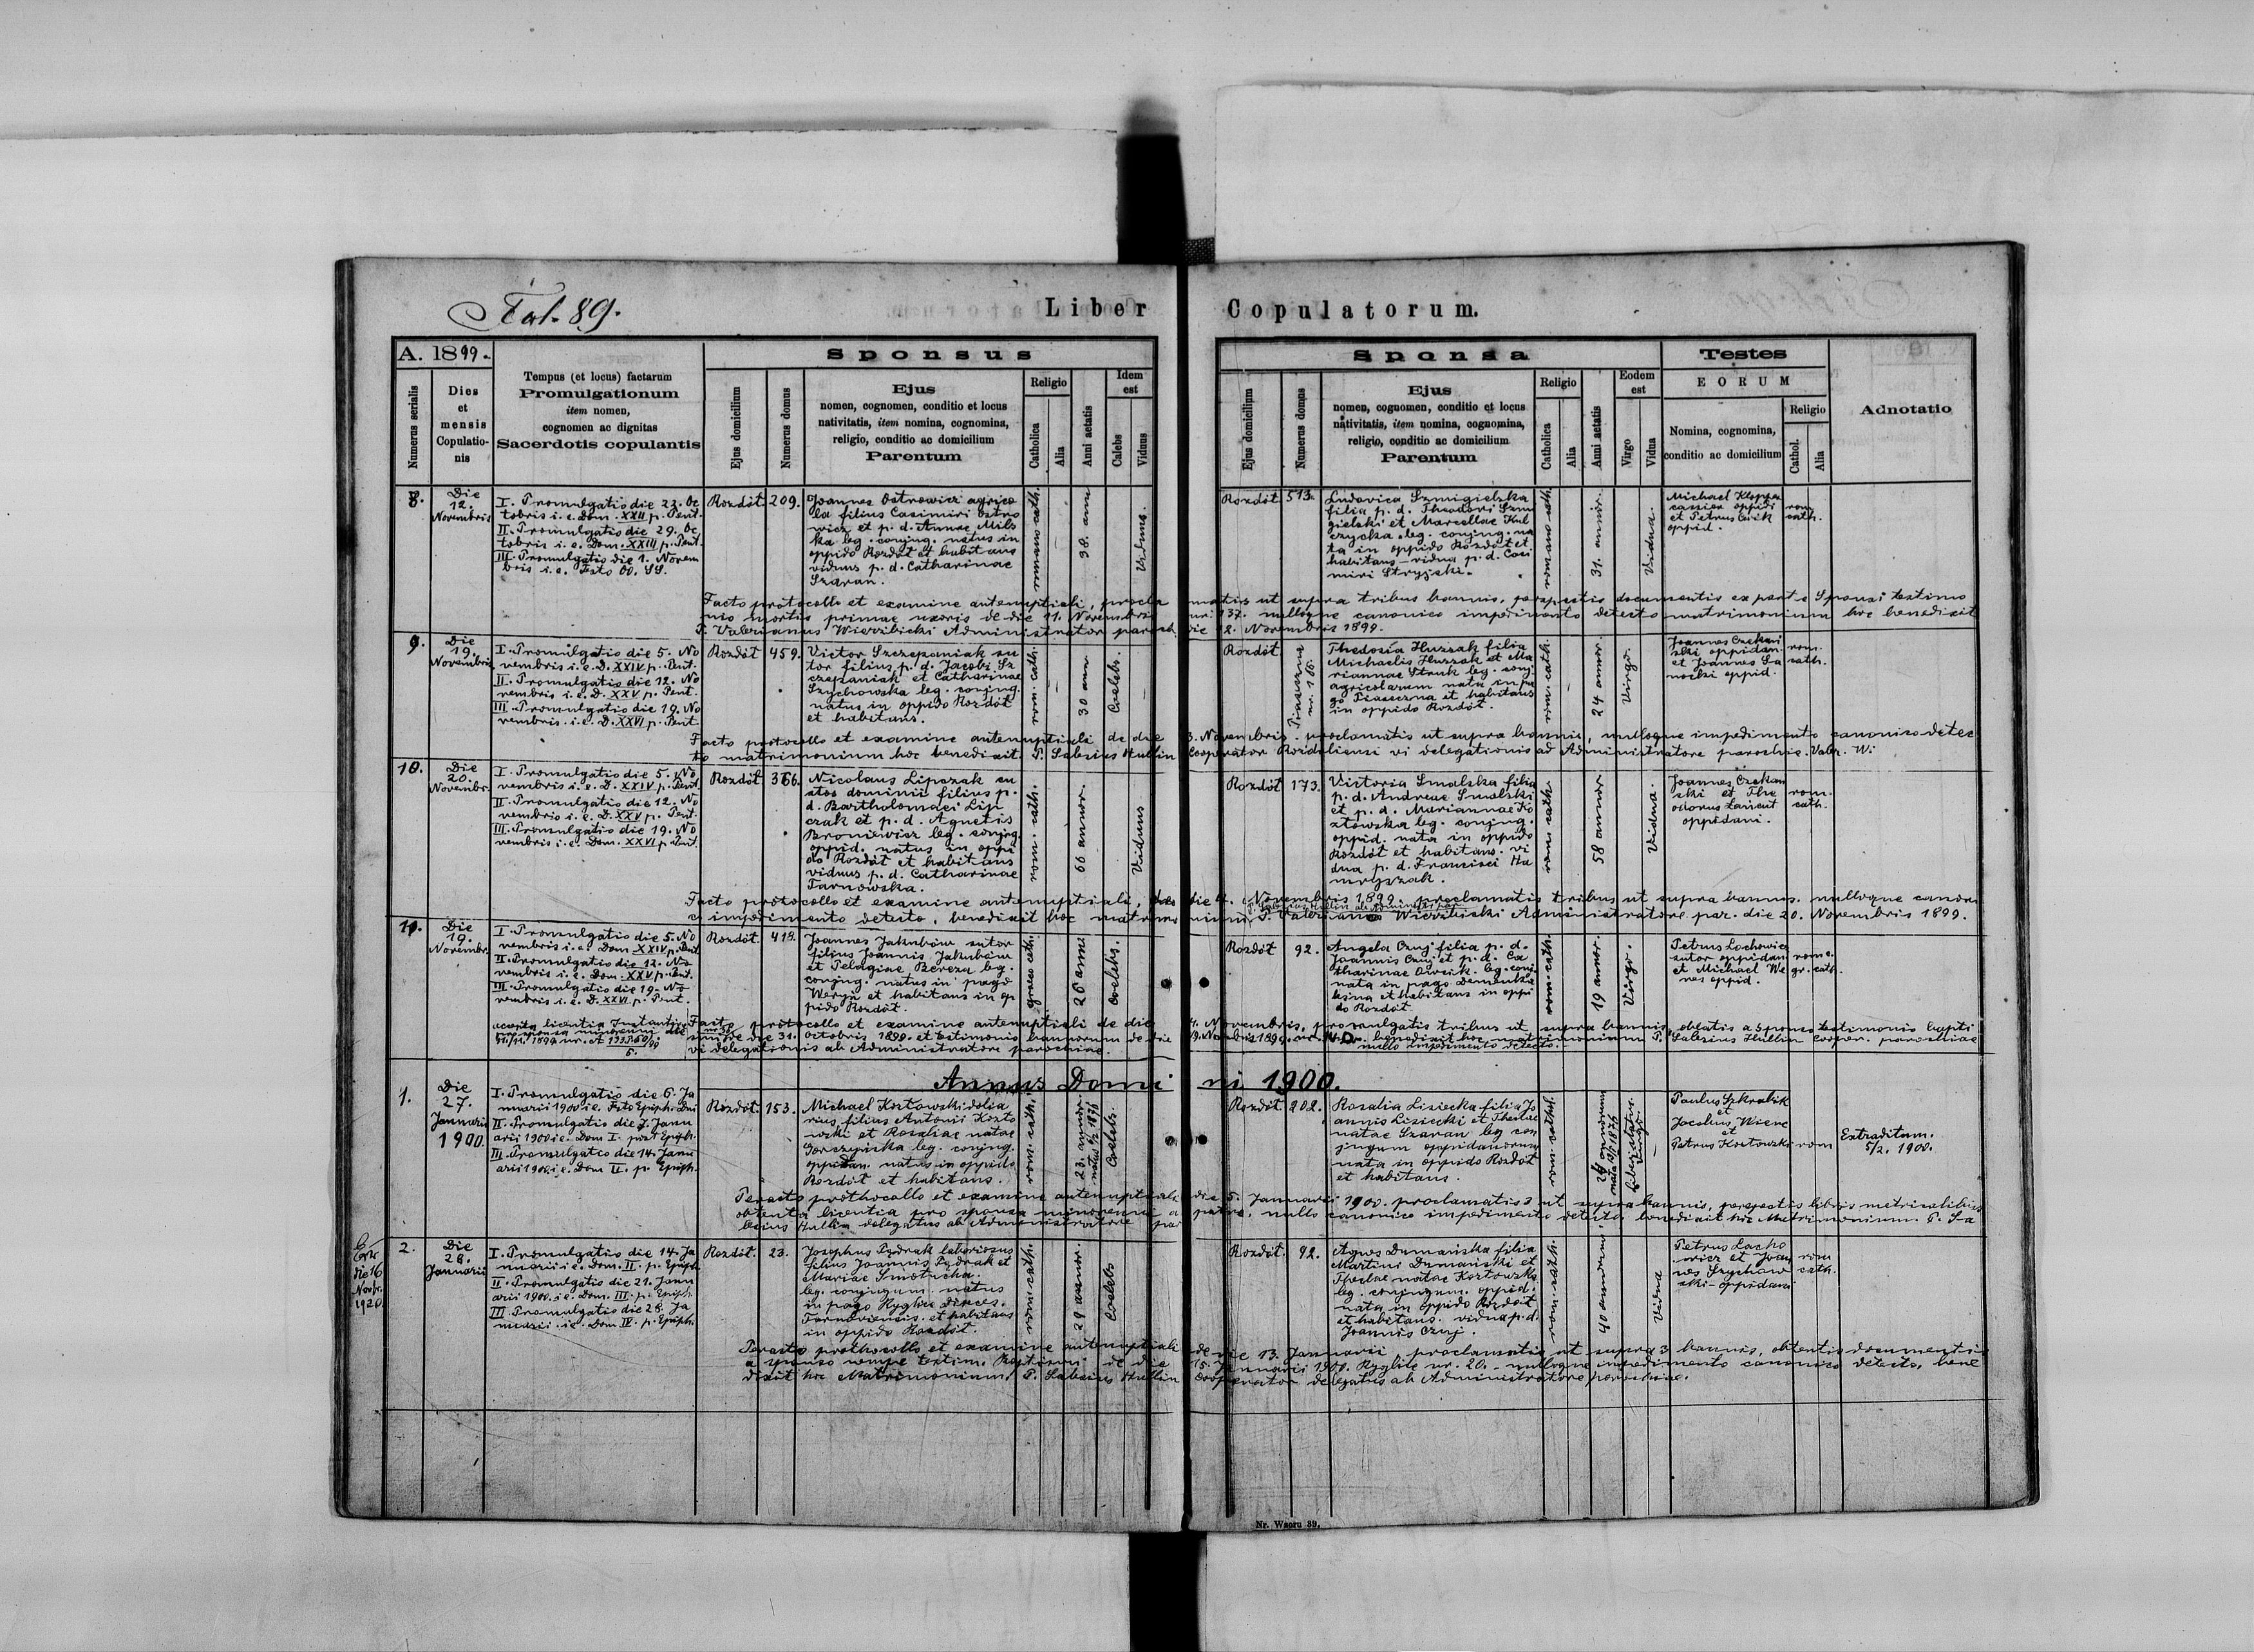 Fol. 89.
Liber Copulatorum.
A. 1899.
Numerus serialis
Dies
et
mensis
Copulatio-
nis
Tempus (et locus) factarum
Promulgationum
item nomen,
cognomen ac dignitas
Sacerdotis copulantis
Sponsus
Ejus domicilium
Numerus domus
Ejus
nomen, cognomen, conditio et locus
nativitatis, item nomina, cognomina,
religio, conditio ac domicilium
Parentum
Religio
Catholica
Alia
Anni aetatis
Idem
est
Calebs
Viduus
Sponsa
Ejus domicilium
Numerus domus
Ejus
nomen, cognomen, conditio et locus
nativitatis, item nomina, cognomina,
religio, conditio ac domicilium
Parentum
Religio
Catholica
Alia
Anni aetatis
Eodem
est
Virgo
Vidua
Testes
EORUM
Nomina, cognomina,
conditio ac domicilium
Religio
Cathol.
Alia
Adnotatio
8.
Die
12.
Novembris
I. Promulgatio die 22. Oc
tobris i. e. Dom. XXII p. Pent.
II. Promulgatio die 29. Oc
tobris i. e. Dom. XXIII p. Pent.
III. Promulgatio die 1. Novem
bris i. e. Festo OO. SS.
Rozdół.
209.
Joannes Ostrowicz agrico
la filius Casimiri Ostro
wicz et p. d. Annae Mils
ka leg. conjug. natus in
oppido Rozdół et habitans
viduus p. d. Catharinae
Szaran.
romano cath.
38. ann
Viduus.
Rozdół
513.
Ludovica Szmigielska
filia p. d. Theodori Szmi
gielski et Marcellae Kul
czycka leg. conjug. na
ta in oppido Rozdół et
habitans - vidua p. d. Casi
miri Stryjski.
romano cath.
31. annor.
Vidua.
Michael
oppidi
et Petrus
oppid.
rom.
cath.
Facto protocollo et examine antenuptiali, procla matis ut supra tribus bannis, perspectis documentis ex parte Sponsi testimo
nio mortis primae uxoris de die 11. Novembris nr. 137. nulloque canonico impedimento detecto matrimonium hoc benedixit
P. Valerianus Wierzbicki Administrator paroch. die 12. Novembris 1899.
9.
Die
19.
Novembris
I. Promulgatio die 5. No
vembris i. e. D. XXIV p. Pent.
II. Promulgatio die 12. No
vembris i. e. D. XXV p. Pent.
III. Promulgatio die 19. No
vembris i. e. D. XXVI p. Pent.
Rozdół
459.
Victor Szczepaniak su
tor filius p. d. Jacobi Sz
czepaniak et Catharinae
Szychowska leg. conjug.
natus in oppido Rozdół
et habitans.
rom. cath.
30 ann
Coelebs.
Rozdół
Piaseczna
nr. 166.
Thedosia Huszak filia
Michaelis Huszak et Ma
riannae Struk leg. conj
agricolarum nata in pa
go Piaseczna et habitans
in oppido Rozdół.
rom. cath.
24 annor.
Virgo.
Joannes Czekań
ski oppidan.
et Joannes Sa
nocki oppid.
rom.
cath.
Facto protocollo et examine antenuptiali de die 3. Novembris. proclamatis ut supra bannis, nulloque impedimento canonico detec
to matrimonium hoc benedixit P. Salesius Hullin Cooperator Rozdoliensi vi delegationis ad Administratore parochiae. Valer. Wi
10.
Die
20.
Novembr.
I. Promulgatio die 5. No
vembris i. e. D. XXIV p. Pent.
II. Promulgatio die 12. No
vembris i. e. D. XXV p. Pent.
III. Promulgatio die 19. No
vembris i. e. Dom. XXVI p. Pent.
Rozdół
366.
Nicolaus Lipczak cu
stos dominii filius p.
d. Bartholomaei Lip
czak et p. d. Agnetis
Broniewicz leg. conjug.
oppid. natus in oppi
do Rozdół et habitans
viduus p. d. Catharinae
Tarnowska.
rom. cath.
66 annor.
Viduus
Rozdół
173.
Victoria Smolska filia
p. d. Andreae Smolski
et p. d. Mariannae Ko
złowska leg. conjug.
oppid. nata in oppido
Rozdół et habitans. vi
dua p. d. Francisci Ha
mryszak.
rom. cath.
58 annor
Vidua.
Joannes Czekań
ski et The
odorus Lancut
oppidani.
rom.
cath.
Facto protocollo et examine antenuptiali, de die 4. Novembris 1899. proclamatis tribus ut supra bannis. nulloque canoni
co impedimento detecto, benedixit hoc matrimo nium P. Valerianus Wierzbicki Administratore par. die 20. Novembris 1899.
11.
Die
19.
Novembr.
I. Promulgatio die 5. No
vembris i. e. Dom. XXIV p. Pent.
II. Promulgatio die 12. No
vembris i. e. Dom. XXV p. Pent.
III. Promulgatio die 19. No
vembris i. e. D. XXVI p. Pent.
Rozdół.
418.
Joannes Jakubów sutor
filius Joannis Jakubów
et Pelagiae Bereza leg.
conjug. natus in pago
Weryn et habitans in op
pido Rozdół.
graeco cath.
26 ann
Coelebs.
Rozdół
92.
Angela Czuj filia p. d.
Joannis Czuj et p. d. Ca
tharinae Owsik. leg. conj.
nata in pago Demenka
leśna et habitans in oppi
do Rozdół.
rom. cath.
19 annor.
Virgo.
Petrus Lachowicz
sutor oppidan.
et Michael We
res oppid.
rom c.
gr. cath.
Facto protocollo et examine antenuptiali de die 4. Novembris, promulgatis tribus ut supra bannis, oblatis a sponso testimonio bapti
smi de die 31. Octobris 1899. et testimonio bannorum de die 19. Novembris 1899. nr. benedixit hoc matrimonium P. Salesius Hullin Cooper. parochiae
vi delegationis ab Administratore parochiae. nullo impedimento detecto.
Annus Domini 1900.
1.
Die
27.
Januarii
1900.
I. Promulgatio die 6. Ja
nuarii 1900 i. e. Festo Epiph. Dni
II. Promulgatio die 7. Janu
arii 1900 i. e. Dom I. post Epiph.
III. Promulgatio die 14. Janu
arii 1900. i. e. Dom II. p. Epiph.
Rozdół.
153.
Michael Kozłowski dolia
rius filius Antonii Kozło
wski et Rosaliae natae
Gorczyńska leg. conjug.
oppidan. natus in oppido
Rozdół et habitans.
rom. cath.
23. annor.
Coelebs.
Rozdół.
202.
Rosalia Lisiecka filia Jo
annis Lisiecki et Theclae
natae Szaran leg con
jugum oppidanorum
nata in oppido Rozdół
et habitans.
rom. cathol.
Paulus Szkrabik
et
Jacobus Wiene
et
Petrus Kozłowski
rom
Extraditum.
5/2. 1900.
Peracto prothocollo et examine antenuptiali die 5. Januarii 1900. proclamatis 3 ut supra bannis, perspectis libris metricalibus
obtenta licentia pro sponsa minorenni a patre, nullo canonico impedimento detecto benedixit hoc Matrimonium. P. Sa
lesius Hullin delegatus ab Administratore par
die 16
Novbr.
1920.
2.
Die
28.
Januarii
I. Promulgatio die 14. Ja
nuarii i. e. Dom. II. p. Epiph.
II. Promulgatio die 21. Janu
arii 1900. i. e. Dom. III. p. Epiph.
III. Promulgatio die 28. Ja
nuarii. i. e. Dom IV. p. Epiph.
Rozdół.
23.
Josephus Pędrak laboriosus
filius Joannis Pędrak et
Mariae Smotucha.
leg. conjugum. natus
in pago Ryglice Dioeces.
Tarnoviensis. et habitans
in oppido Rozdół.
rom. cath.
29 annor.
Coelebs
Rozdół.
92.
Agnes Dumańska filia
Martini Dumański et
Theclae natae Kozłowska
leg. conjugum. oppid.
nata in oppido Rozdół
et habitans. vidua p. d.
Joannis Czuj.
rom. cath.
40 annorum
Vidua
Petrus Lacho
wicz et Joan
nes Szychow
ski - oppidani
rom
cath.
Peracto prothocollo et examine antenuptiali de die 13. Januarii, proclamatis ut supra 3 bannis, obtentis documentis
a sponso nempe testim. Baptismi de die 15. Januarii 1900. Ryglice nr. 20. - nulloque impedimento canonico detecto, bene
dixit hoc Matrimonium. P. Salesius Hullin Cooperator delegatus ab Administratore parochiae.